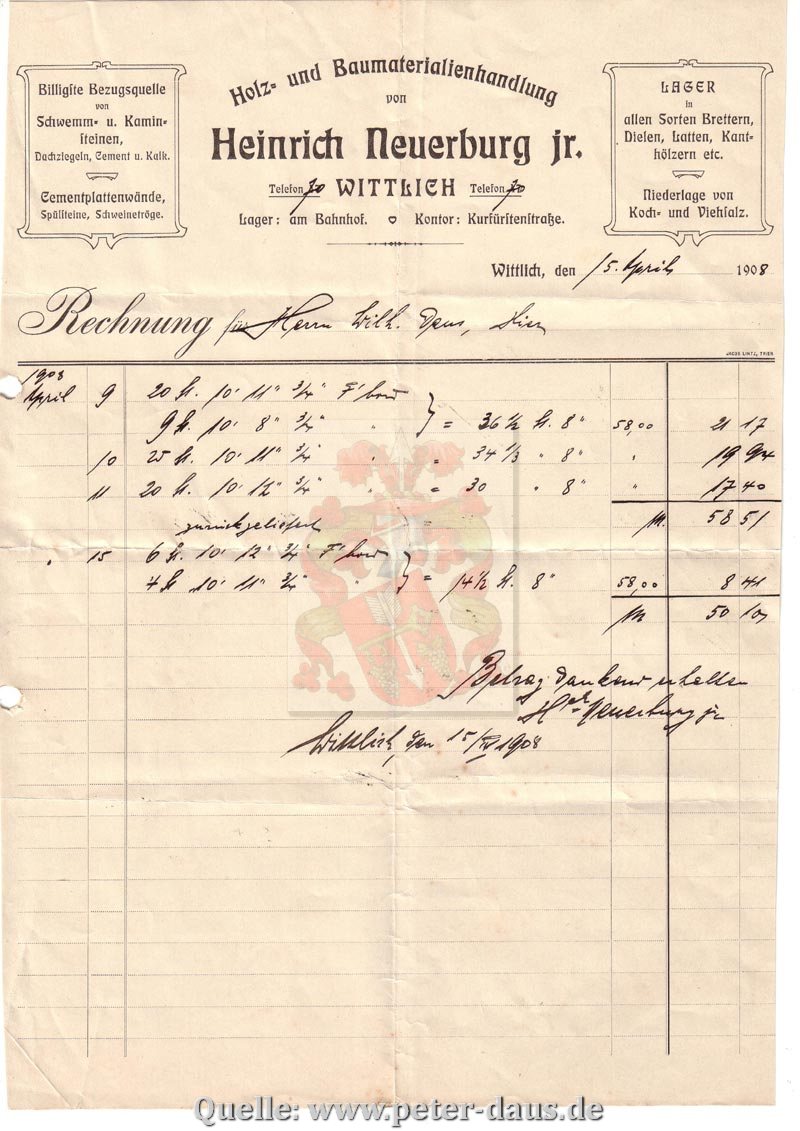 Holz- und Baumaterialienhandlung
von
Heinrich Neuerburg jr.
Telefon 70 WITTLICH Telefon 70
Lager: am Bahnhof. Kontor: Kurfürstenstraße.
Billigste Bezugsquelle
von
Schwemm- u. Kamin-
steinen,
Dachziegeln, Cement u. Kalk.
Cementplattenwände,
Spülsteine, Schweinetröge.
LAGER
in
allen Sorten Brettern,
Dielen, Latten, Kant-
hölzern etc.
Niederlage von
Koch- und Viehsalz.
Wittlich, den 15. April 1908
Rechnung für Herrn Wilh. Daus, Hier
JACOB LINTZ, TRIER
1908
April 9 20 St. 10' 11" 3/4" F'bord
9 St. 10' 8" 3/4" " = 36 1/2 St. 8" 58,00 21 17
10 25 St. 10' 11" 3/4" " = 34 1/3 " 8" " 19 94
11 20 St. 10' 12" 3/4" " = 30 " 8" " 17 40
zurückgeliefert M. 58 51
" 15 6 St. 10' 12" 3/4" F'bord
4 St. 10' 11" 3/4" " = 14 1/2 St. 8" 58,00 8 41
M 50 10
Betrag dankend erhalten
Hch Neuerburg jr
Wittlich, den 15/IV 1908
Quelle: www.peter-daus.de